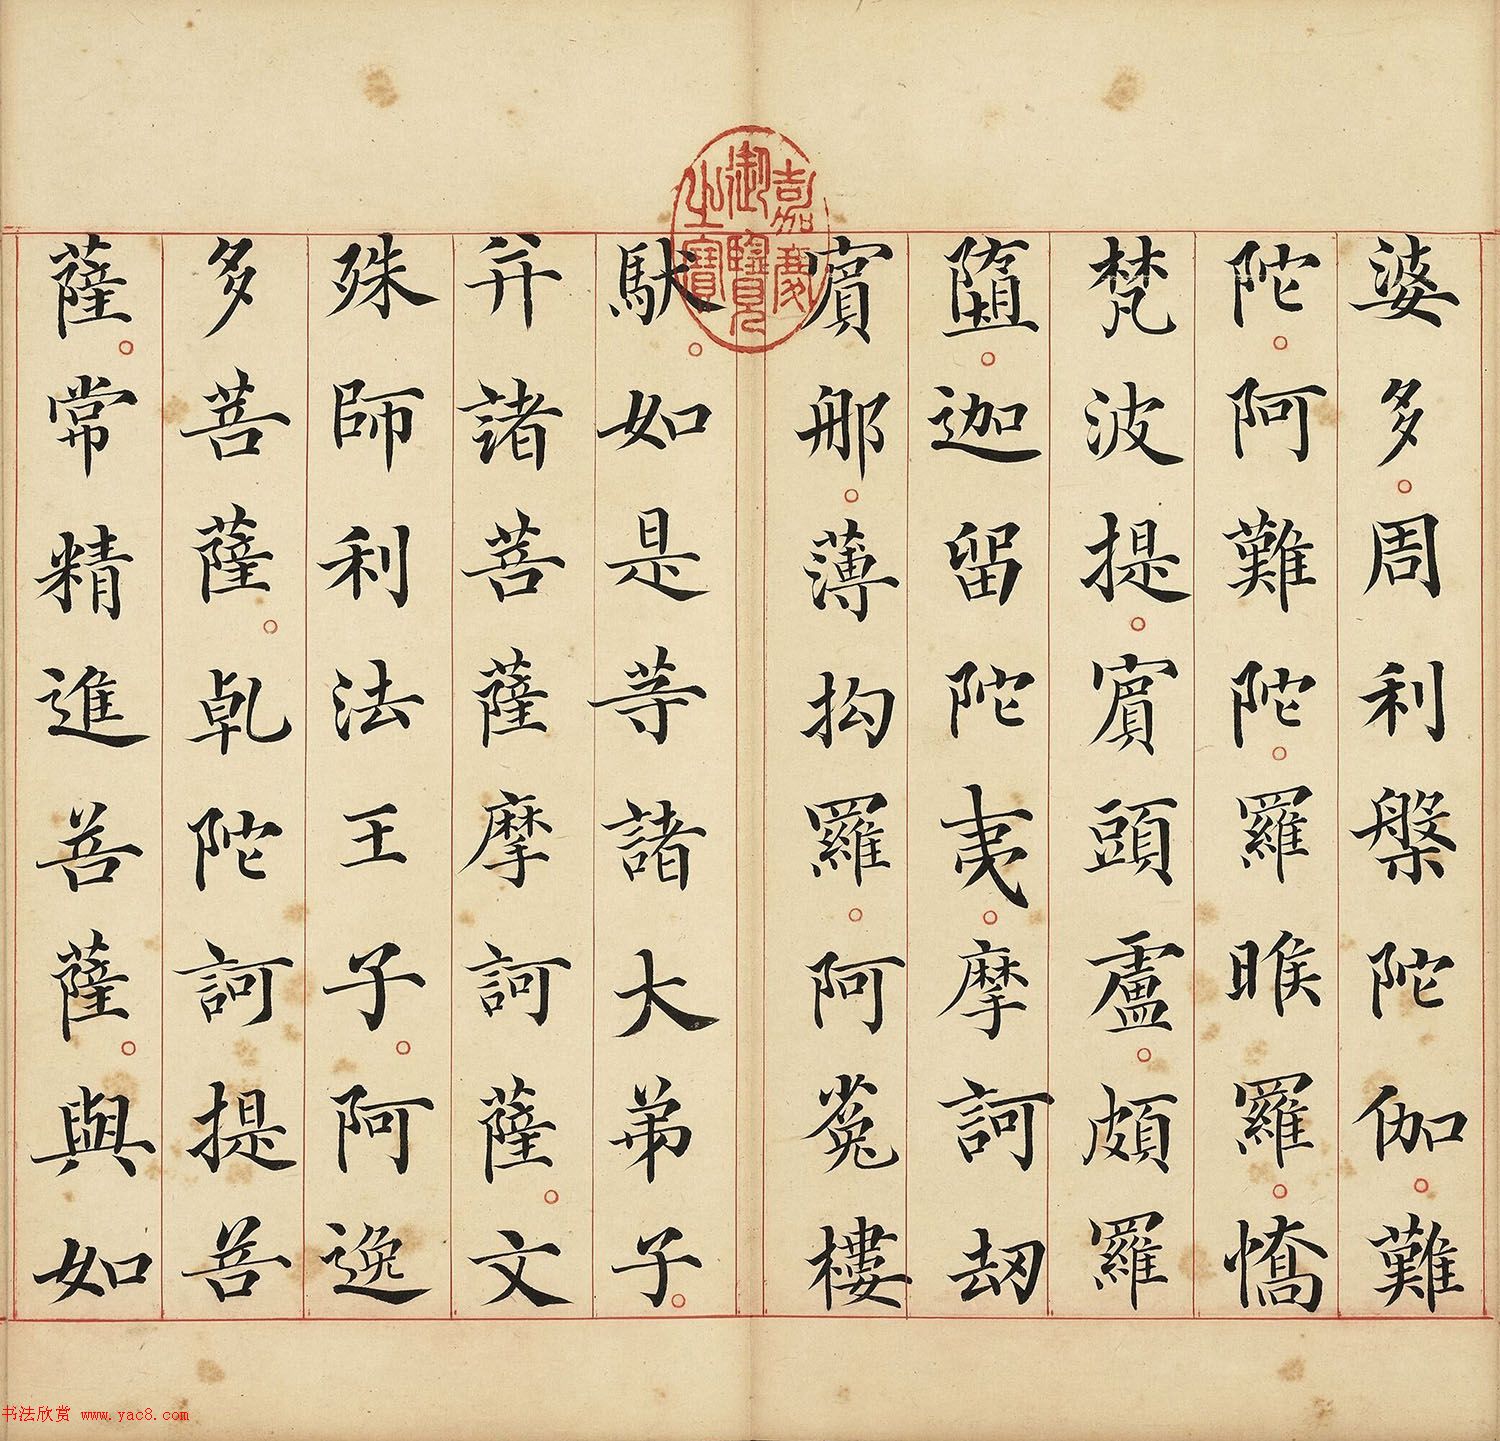 婆多。周利槃陀伽。難
陀。阿難陀。羅睺羅。憍
梵波提。賓頭盧。頗羅
墮。迦留陀夷。摩訶刧
賓那。薄拘羅。阿菟樓
馱。如是等諸大弟子。
并諸菩薩摩訶薩。文
殊師利法王子。阿逸
多菩薩。乾陀訶提菩
薩。常精進菩薩。與如
嘉慶
御覽
之寶
书法欣赏 www.yac8.com